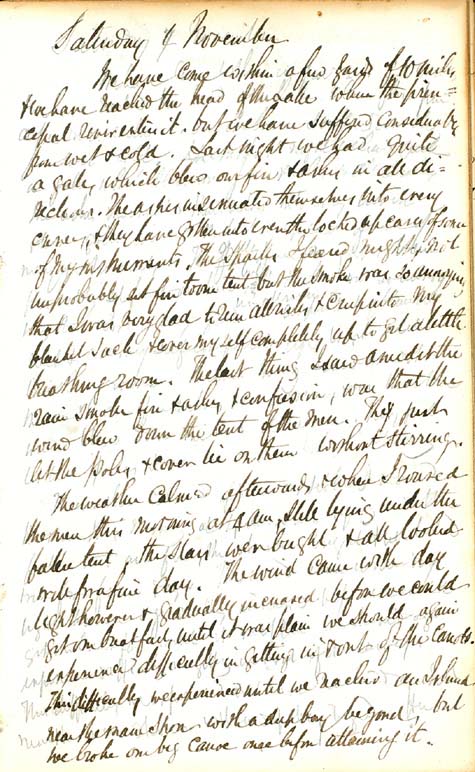 Saturday 9 November
We have come within a few yards of 10 miles
& we have reached the head of the Lake where the prin=
cepal river enters it. but we have suffered considerably
from wet & cold. Last night we had quite
a gale, which blew our fire & ashes in all di=
rections. The ashes insinuated themselves into every
corner, & they have gotten into even the locked up cases of some
of my instruments. The sparks I feared might not
improbably set fire to our tent but the smoke was so annoying
that I was very glad to run all risks & creep into my
blanket sack & cover myself completely up to get a little
breathing room. The last thing I saw amidst the
rain smoke fire & ashes & confusion, was that the
wind blew down the tent of the men. They just
let the poles & cover lie on them without stirring.
The weather calmed afterwards & when I roused
the men this morning at 4 am still lying under the
fallen tent, the stars were bright & all looked
well for a fine day. The wind came with day
light however & gradually increased before we could
get our breakfast, until it was plain we should again
experience difficulty in getting in & out of the Canoes.
This difficulty we experienced until we reached an Island
near the main shore with a deep bay beyond, but
we broke our big Canoe once before attaining it.